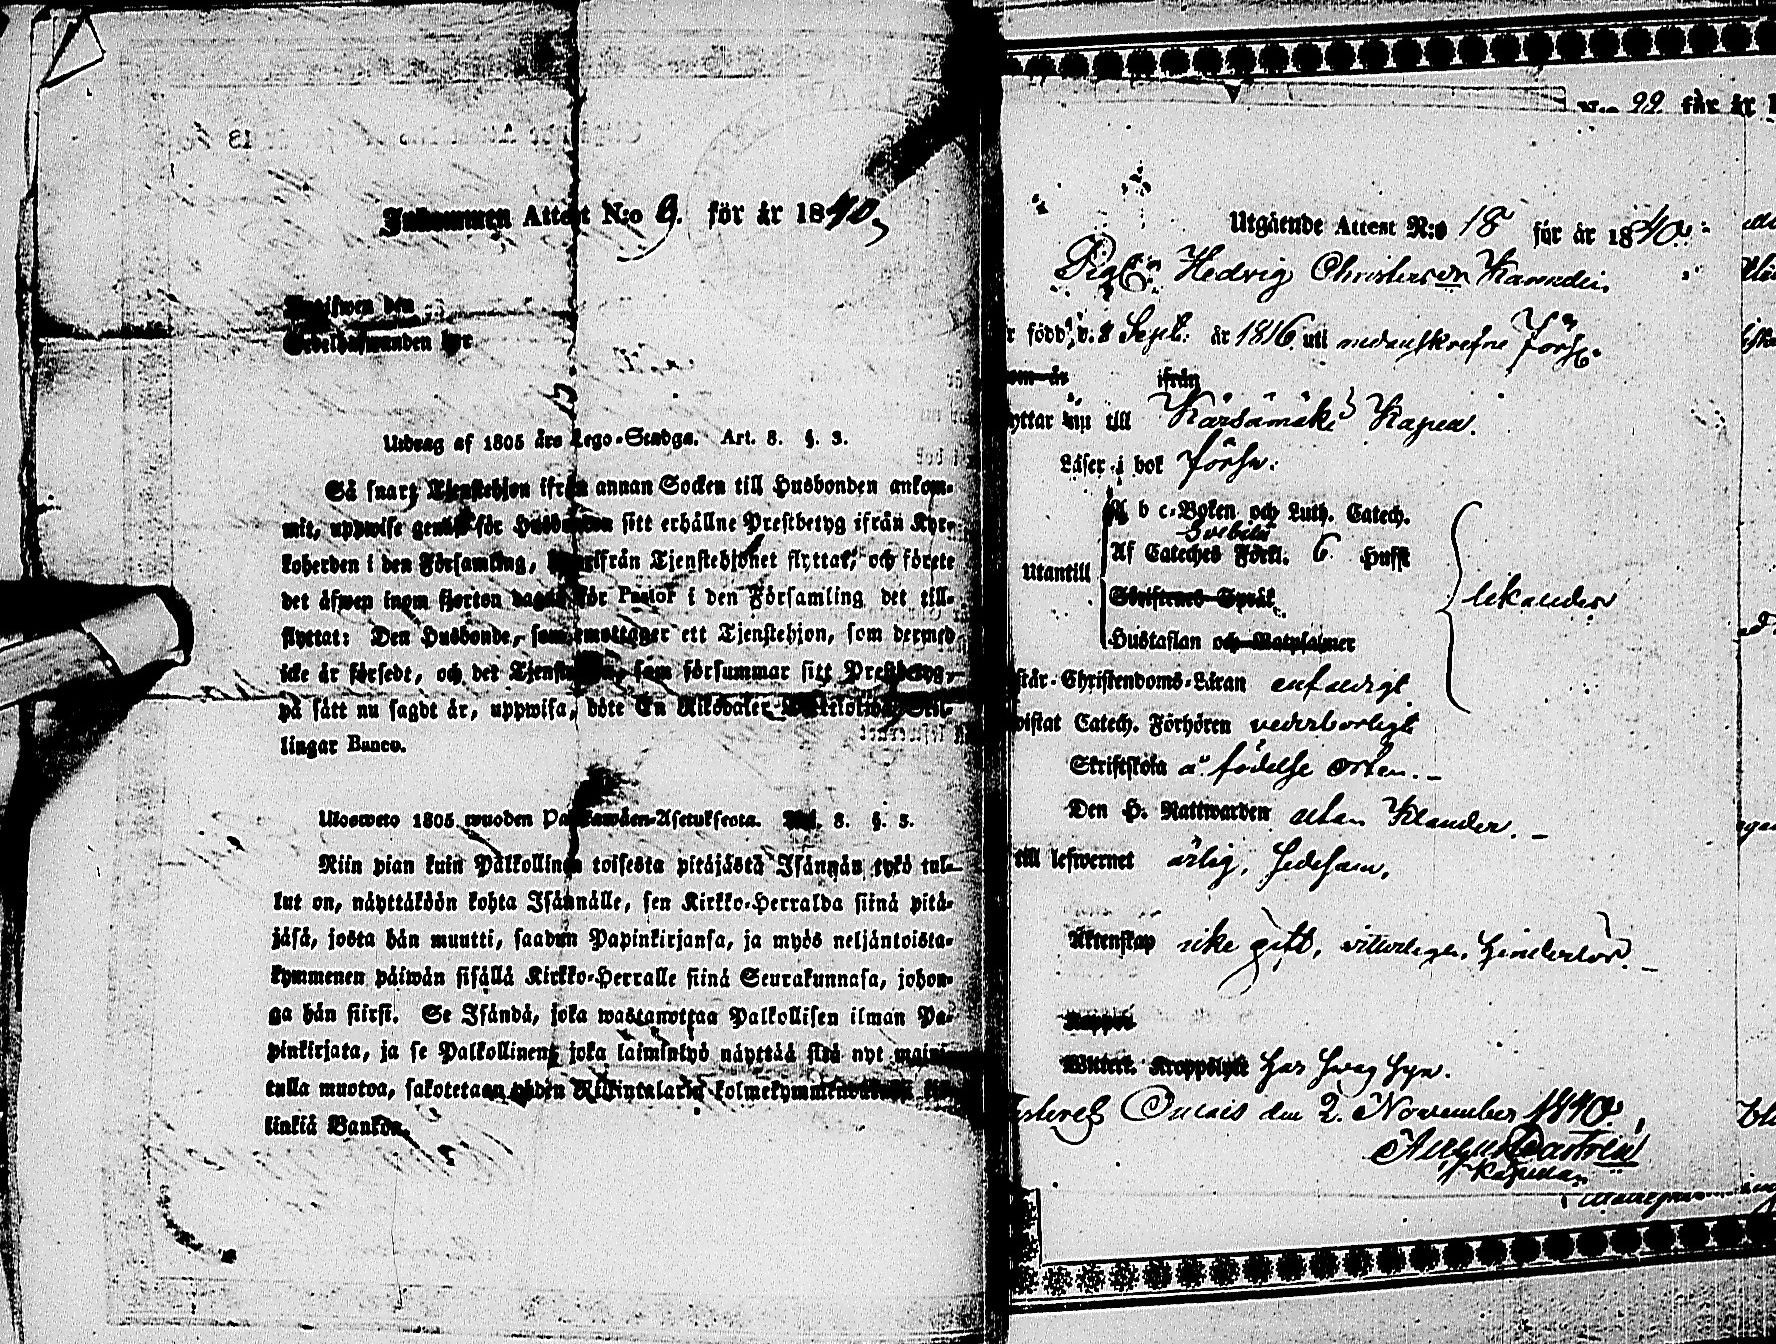 Inkommen Attest N:o 9. för år 1840,
Uppwisen den
Vederhafwanden hos
Utdrag af 1805 års Lego-Stadga. Art. 8. §. 3.
Så snart Tjenstehjon ifrån annan Socken till Husbonden ankom-
mit, uppwise genast för Husbonden sitt erhållne Prestbetyg ifrån Kyr-
koherden i den Församling, hwarifrån Tjenstehjonet flyttat, och förete
det äfwen inom fjorton dagar för Pastor i den Församling det till-
flyttat: Den Husbonde, som emottager ett Tjenstehjon, som dermed
icke är försedt, och det Tjenstehjon, som försummar sitt Prestbetyg,
på sätt nu sagdt är, uppwisa, böte En Riksdaler Trettiotwå Skil-
lingar Banco.
Ulosweto 1805 wuoden Palkkawäen-Asetuksesta. Art. 8. §. 3.
Niin pian kuin Palkollinen toisesta pitäjästä Isännän tykö tul-
lut on, näyttäköön kohta Isännälle, sen Kirkko-Herralda siinä pitä-
jäsä, josta hän muutti, saadun Papinkirjansa, ja myös neljäntoista-
kymmenen päiwän sisällä Kirkko-Herralle siinä Seurakunnasa, johon-
ga hän siirsi. Se Isändä, joka wastanottaa Palkollisen ilman Pa-
pinkirjata, ja se Palkollinen, joka laiminlyö näyttää sitä nyt maini-
tulla muotoa, sakotetaan yhden Riikintalarin kolmekymmendäkaxi kil-
linkiä Bankoa.
N:o 22 för år 1
Utgående Attest N:o 18 för år 1840.
Pig. Hedvig Christersdr
född d. 8 Sept. år 1816 uti nedanskrefne Förs.
om år ifrån
yttar nu till Kärsämäki Kapell.
Läser i bok försv.
Utantill
A b c-Boken och Luth. Catech.
Svebelii
Af Cateches Förkl. 6 Hufst
Skriftenes Språk
Hustaflan och Matpsalmer
likaledes
står Christendoms-Läran enfaldigt
vistat Catech. Förhören vederborligt
Skriftskola å födelse orten.
Den H. Nattwarden utan Klander.
till lefwernet ärlig, sedesam,
Äktenskap icke gift, vitterligen hinderlös.
Koppor
Witterl. Kroppslyte har svag syn.
den 2. November 1840.